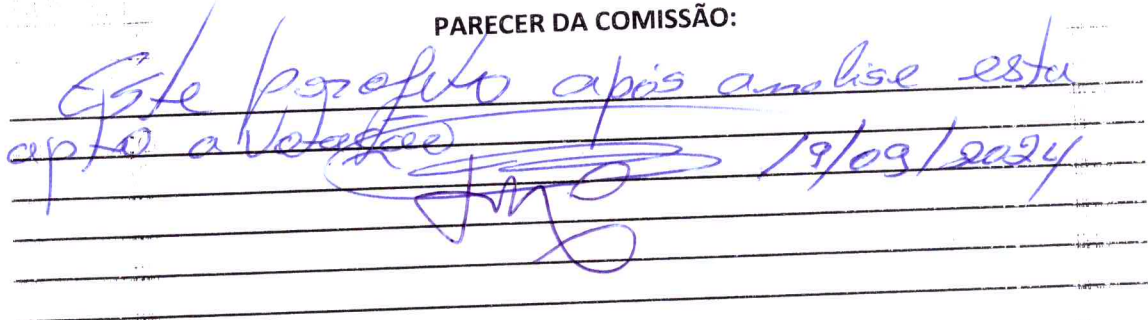 PARECER DA COMISSÃO:
Este Porojeto após analise esta
apto a Votação 19/09/2024